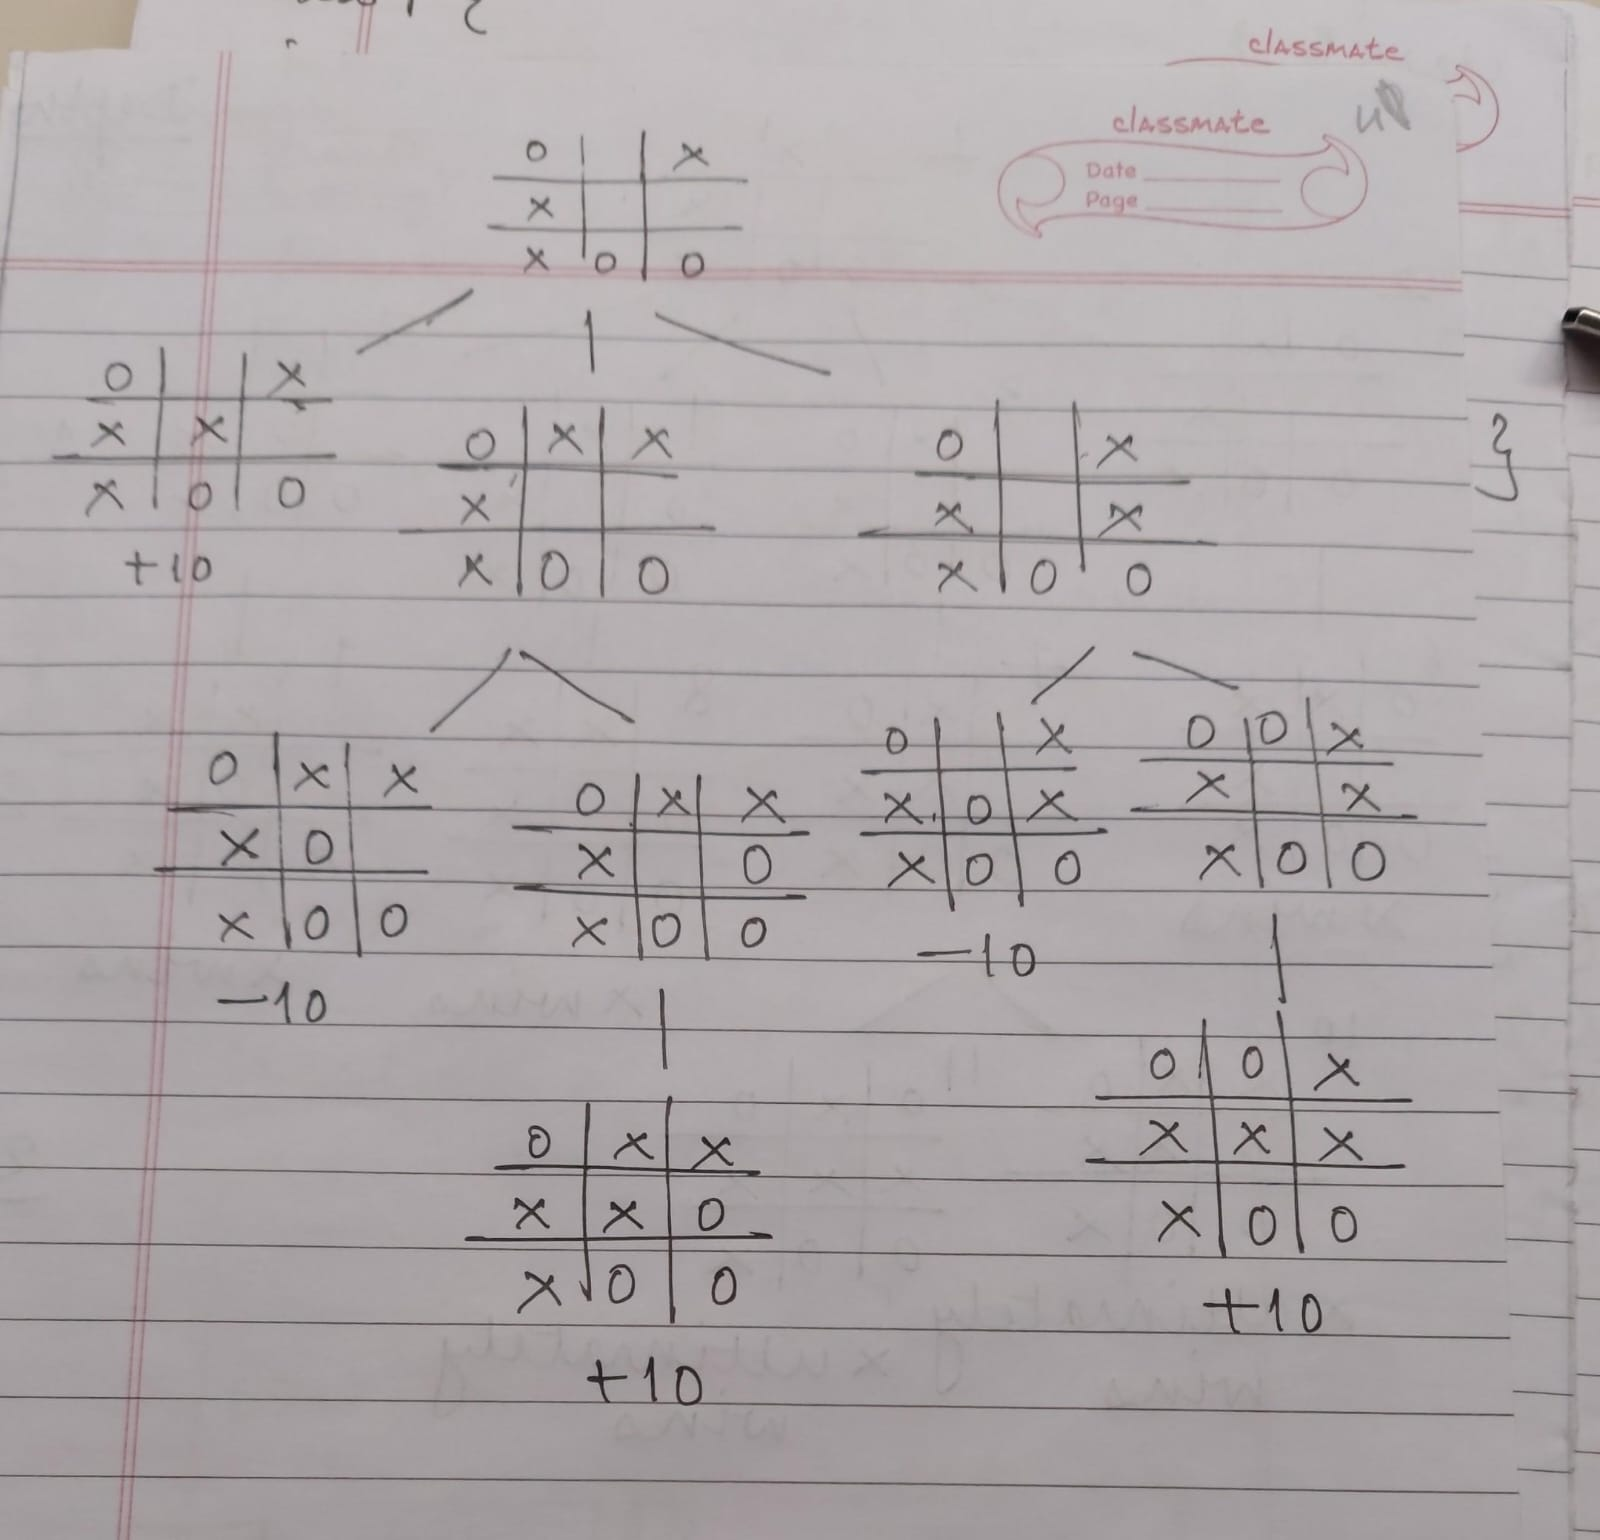 classmate
classmate
Date
Page
O X
X
X O O
O X
X X
X O O
+10
O X X
X
X O O
O X
X X
X O O
}
O X X
X O
X O O
-10
O X X
X O
X O O
O X
X O X
X O O
-10
O O X
X X
X O O
O X X
X X O
X O O
+10
O O X
X X X
X O O
+10